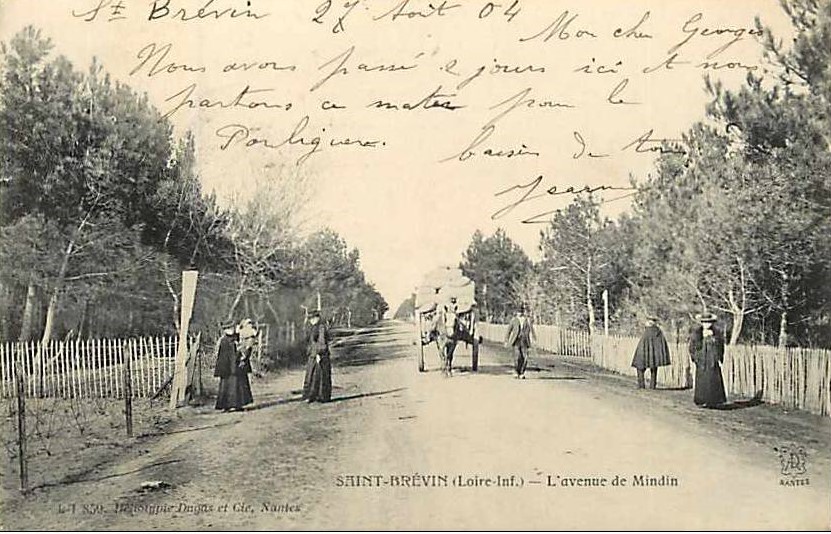 St Brévin 27 Août 04 Mon cher Georges
Nous avons passé 2 jours ici et nous
partons ce matin pour le
Pouliguen. baisers de tous
Jeanne
SAINT-BRÉVIN (Loire-Inf.) — L'avenue de Mindin
850. Héliotypie Dugas et Cie, Nantes
NANTES